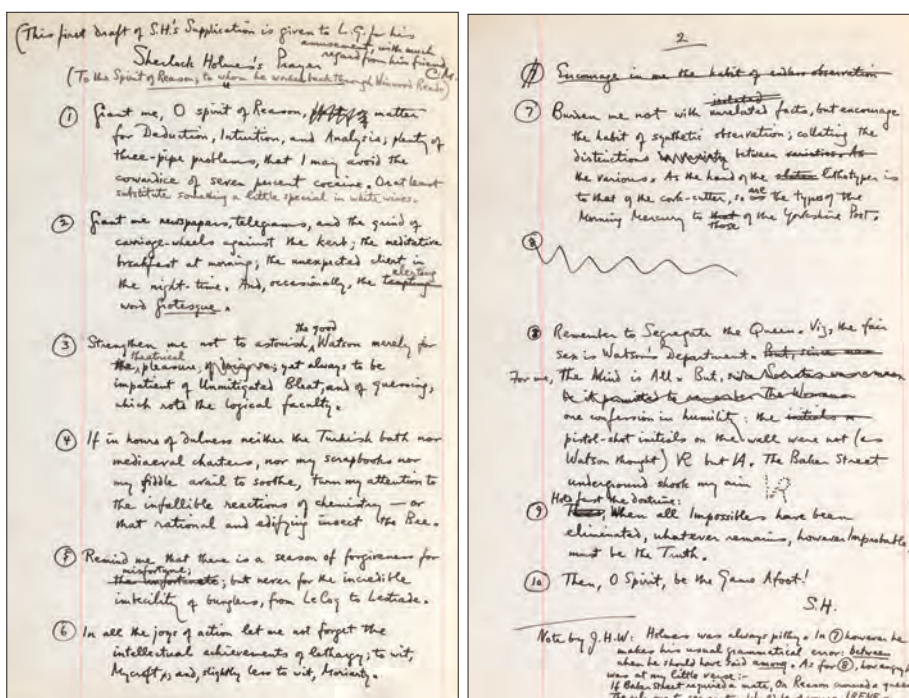 (This first draft of S.H.'s Supplication is given to L.G. for his
amusement, with much
regard from his friend,
C.M.
Sherlock Holmes's Prayer
(To the Spirit of Reason, to whom he worked back through Winwood Reade)
① Grant me, O spirit of Reason, matter
for Deduction, Intuition, and Analysis; plenty of
three-pipe problems, that I may avoid the
cowardice of seven percent cocaine. Or at least
substitute something a little special in white wines.
② Grant me newspapers, telegrams, and the grind of
carriage-wheels against the kerb; the meditative
breakfast at morning; the unexpected client in
the night-time. And, occasionally, the tempting electing
word grotesque.
③ Strengthen me not to astonish the good Watson merely for
the theatrical pleasure; yet always to be
impatient of Unmitigated Bleat, and of guessing,
which rots the logical faculty.
④ If in hours of dulness neither the Turkish bath nor
mediaeval charters, nor my scrapbooks nor
my fiddle avail to soothe, turn my attention to
the infallible reactions of chemistry — or
that rational and edifying insect the Bee.
⑤ Remind me that there is a season of forgiveness for
misfortune;
the unfortunate; but never for the incredible
imbecility of bunglers, from LeCoq to Lestrade.
⑥ In all the joys of action let me not forget the
intellectual achievements of lethargy; to wit,
Mycroft; and, slightly less to wit, Moriarty.
2
Encourage in me the habit of endless observation
⑦ Burden me not with unrelated isolated facts, but encourage
the habit of synthetic observation; collating the
distinctions between varieties. As
the various. As the hand of the lithotyper is
to that of the cork-cutter, so are the types of the
Morning Mercury to that those of the Yorkshire Post.
⑧
⑧ Remember to Segregate the Queen. Viz, the fair
sex is Watson's Department. But, since
For me, the Mind is All. But,
be it permitted to remember The Woman
one confession in humility: the initials
pistol-shot initials on the wall were not (as
Watson thought) VR but IA. The Baker Street
underground shook my aim
Hold fast the doctrine:
⑨ When all Impossibles have been
eliminated, whatever remains, however Improbable,
must be the Truth.
⑩ Then, O Spirit, be the Game Afoot!
S.H.
Note by J.H.W: Holmes was always pithy. In ⑦ however he
makes his usual grammatical error: between
when he should have said among. As for ⑧, how angry he
was at my little verse:-
If Baker Street required a mate, On Reason crowned a queen